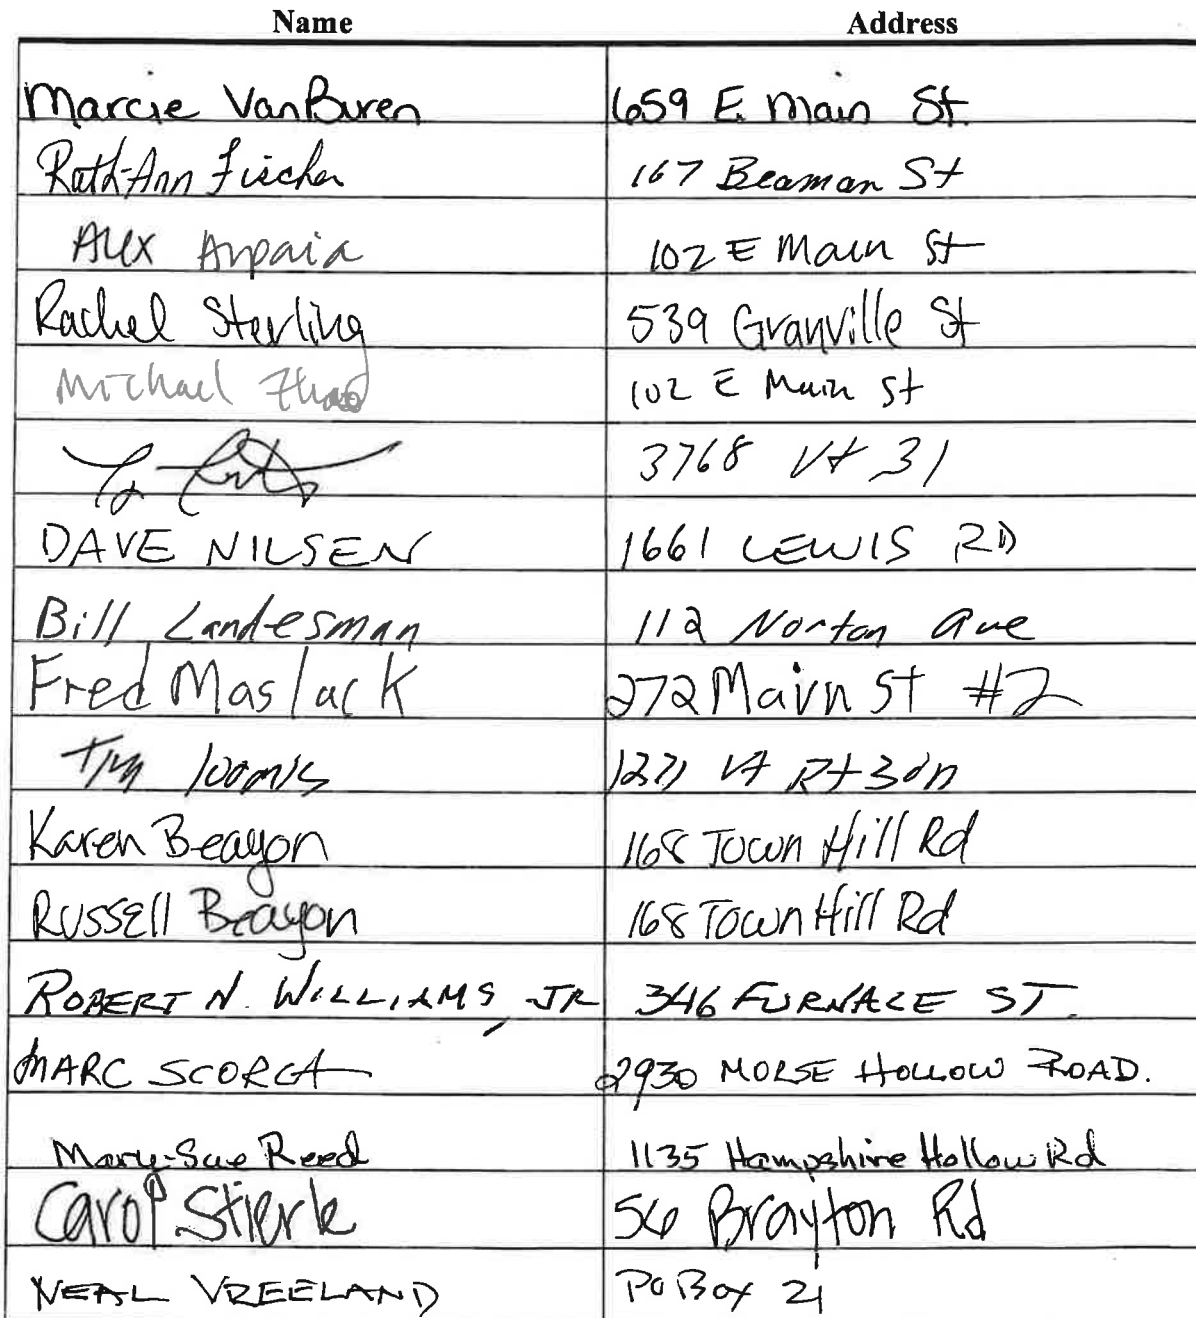 Name Address
Marcie VanBuren 659 E. Main St.
Ruth-Ann Fischer 167 Beaman St
Alex Arpaia 102 E Main St
Rachel Sterling 539 Granville St
Michael Zhao 102 E Main St
3768 Vt 31
DAVE NILSEN 1661 LEWIS RD
Bill Landesman 112 Norton Ave
Fred Maslack 272 Main St #2
Tim loomis 1271 Vt Rt 30n
Karen Beayon 168 Town Hill Rd
RUSSEll Beayon 168 Town Hill Rd
ROBERT N. WILLIAMS, JR 346 FURNACE ST.
MARC SCORCA 2930 MORSE HOLLOW ROAD.
Mary-Sue Reed 1135 Hampshire Hollow Rd
Carol Stierle 56 Brayton Rd
NEAL VREELAND PO Box 21